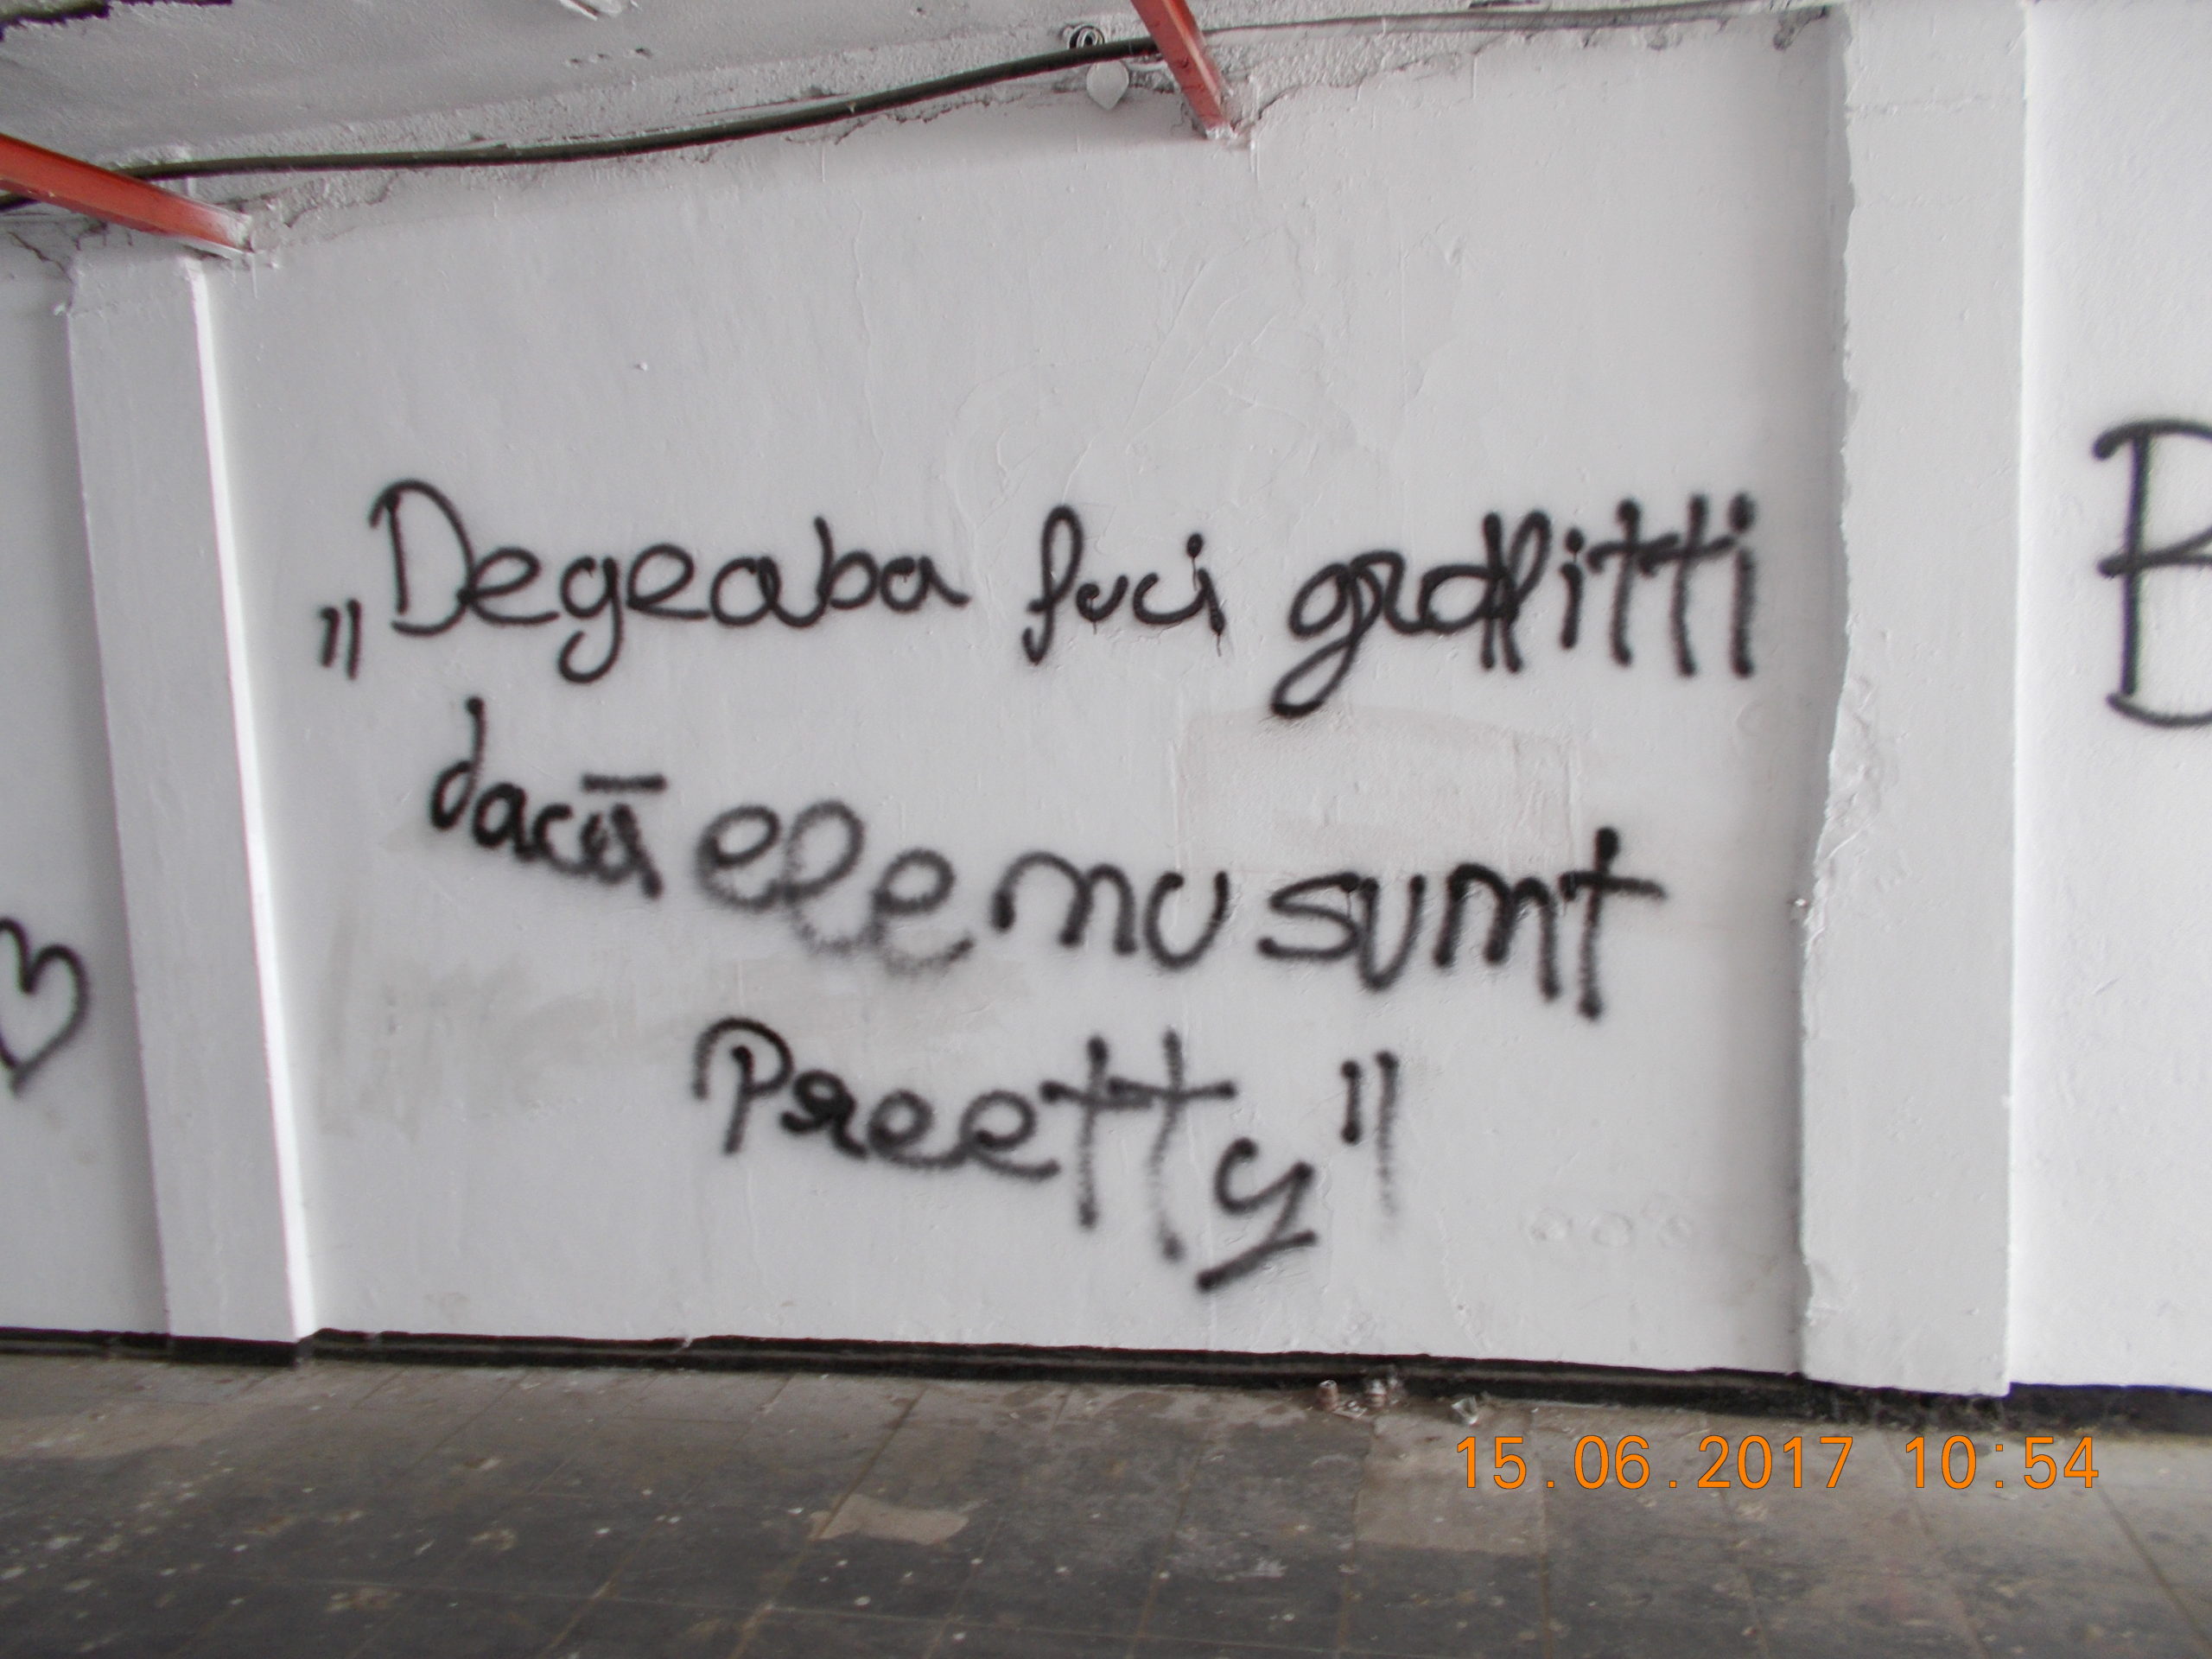 „Degeaba faci graffitti
dacă ele nu sunt
Preetty"
B
15.06.2017 10:54